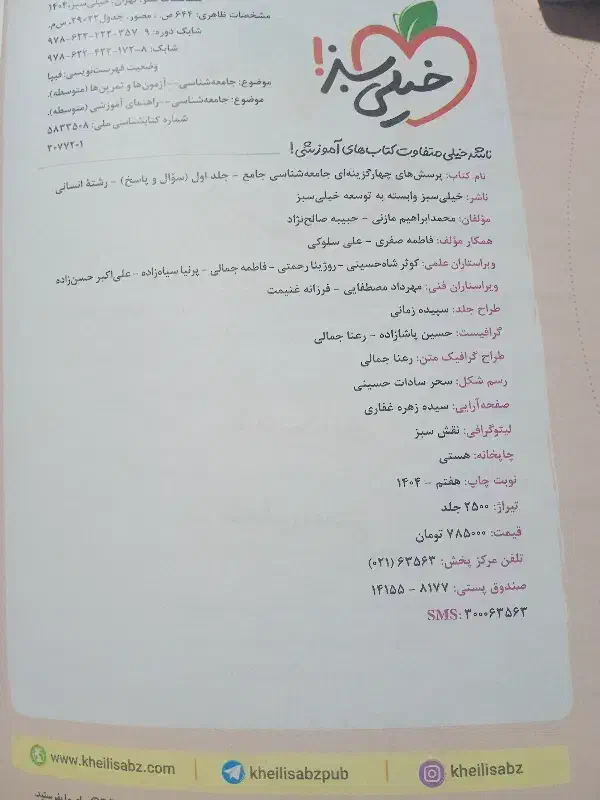 مشخصات ظاهری: ۶۴۴ ص، مصور، جدول؛ ۲۲×۲۹ س‌م.
شابک دوره: ۹-۳۵۷-۲۲۲-۶۲۲-۹۷۸
شابک: ۸-۹۷۲-۴۲۲-۶۲۲-۹۷۸
وضعیت فهرست‌نویسی: فیپا
موضوع: جامعه‌شناسی -- آزمون‌ها و تمرین‌ها (متوسطه).
موضوع: جامعه‌شناسی -- راهنمای آموزشی (متوسطه).
شماره کتابشناسی ملی: ۵۸۳۳۵۰۸
۳۰۷۷۲۰۱
خیلی سبز!
ناشر خیلی متفاوت کتاب‌های آموزشی!
نام کتاب: پرسش‌های چهارگزینه‌ای جامعه‌شناسی جامع - جلد اول (سؤال و پاسخ) - رشتهٔ انسانی
ناشر: خیلی‌سبز وابسته به توسعه خیلی‌سبز
مؤلفان: محمدابراهیم مازنی - حبیبه صالح‌نژاد
همکار مؤلف: فاطمه صفری - علی سلوکی
ویراستاران علمی: کوثر شاه‌حسینی - روژینا رحمتی - فاطمه جمالی - پرنیا سیاه‌زاده - علی‌اکبر حسن‌زاده
ویراستاران فنی: مهرداد مصطفایی - فرزانه غنیمت
طراح جلد: سپیده زمانی
گرافیست: حسین پاشازاده - رعنا جمالی
طراح گرافیک متن: رعنا جمالی
رسم شکل: سحر سادات حسینی
صفحه‌آرایی: سیده زهره غفاری
لیتوگرافی: نقش سبز
چاپخانه: هستی
نوبت چاپ: هفتم - ۱۴۰۴
تیراژ: ۲۵۰۰ جلد
قیمت: ۷۸۵۰۰۰ تومان
تلفن مرکز پخش: ۶۳۵۶۳ (۰۲۱)
صندوق پستی: ۸۱۷۷ - ۱۴۱۵۵
SMS: ۳۰۰۰۶۳۵۶۳
www.kheilisabz.com | kheilisabzpub | kheilisabz